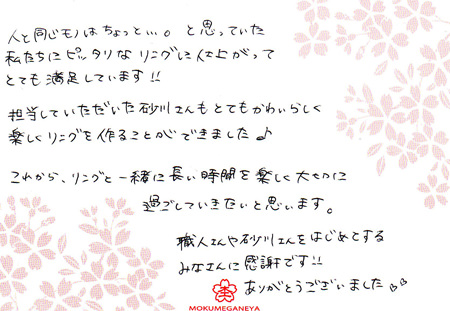 人と同じモノはちょっと…。と思っていた
私たちにピッタリなリングに仕上がって
とても満足しています!!
担当していただいた砂川さんもとてもかわいらしく
楽しくリングを作ることができました♪
これから、リングと一緒に長い時間を楽しく大切に
過ごしていきたいと思います。
職人さんや砂川さんをはじめてする
みなさんに感謝です!!
ありがとうございました
MOKUMEGANEYA